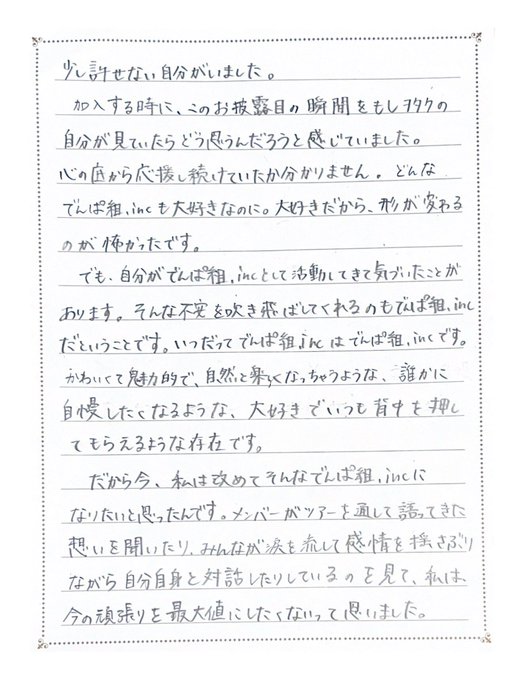 少し許せない自分がいました。
加入する時に、このお披露目の瞬間をもしヲタクの
自分が見ていたらどう思うんだろうと感じていました。
心の底から応援し続けていたか分かりません。どんな
でんぱ組.incも大好きなのに。大好きだから、形が変わる
のが怖かったです。
でも、自分がでんぱ組.incとして活動してきて気づいたことが
あります。そんな不安を吹き飛ばしてくれるのもでんぱ組.inc
だということです。いつだってでんぱ組.incはでんぱ組.incです。
かわいくて魅力的で、自然と楽しくなっちゃうような、誰かに
自慢したくなるような、大好きでいつも背中を押し
てもらえるような存在です。
だから今、私は改めてそんなでんぱ組.incに
なりたいと思ったんです。メンバーがツアーを通して語ってきた
想いを聞いたり、みんなが涙を流して感情を揺さぶり
ながら自分自身と対話したりしているのを見て、私は
今の頑張りを最大値にしたくないって思いました。